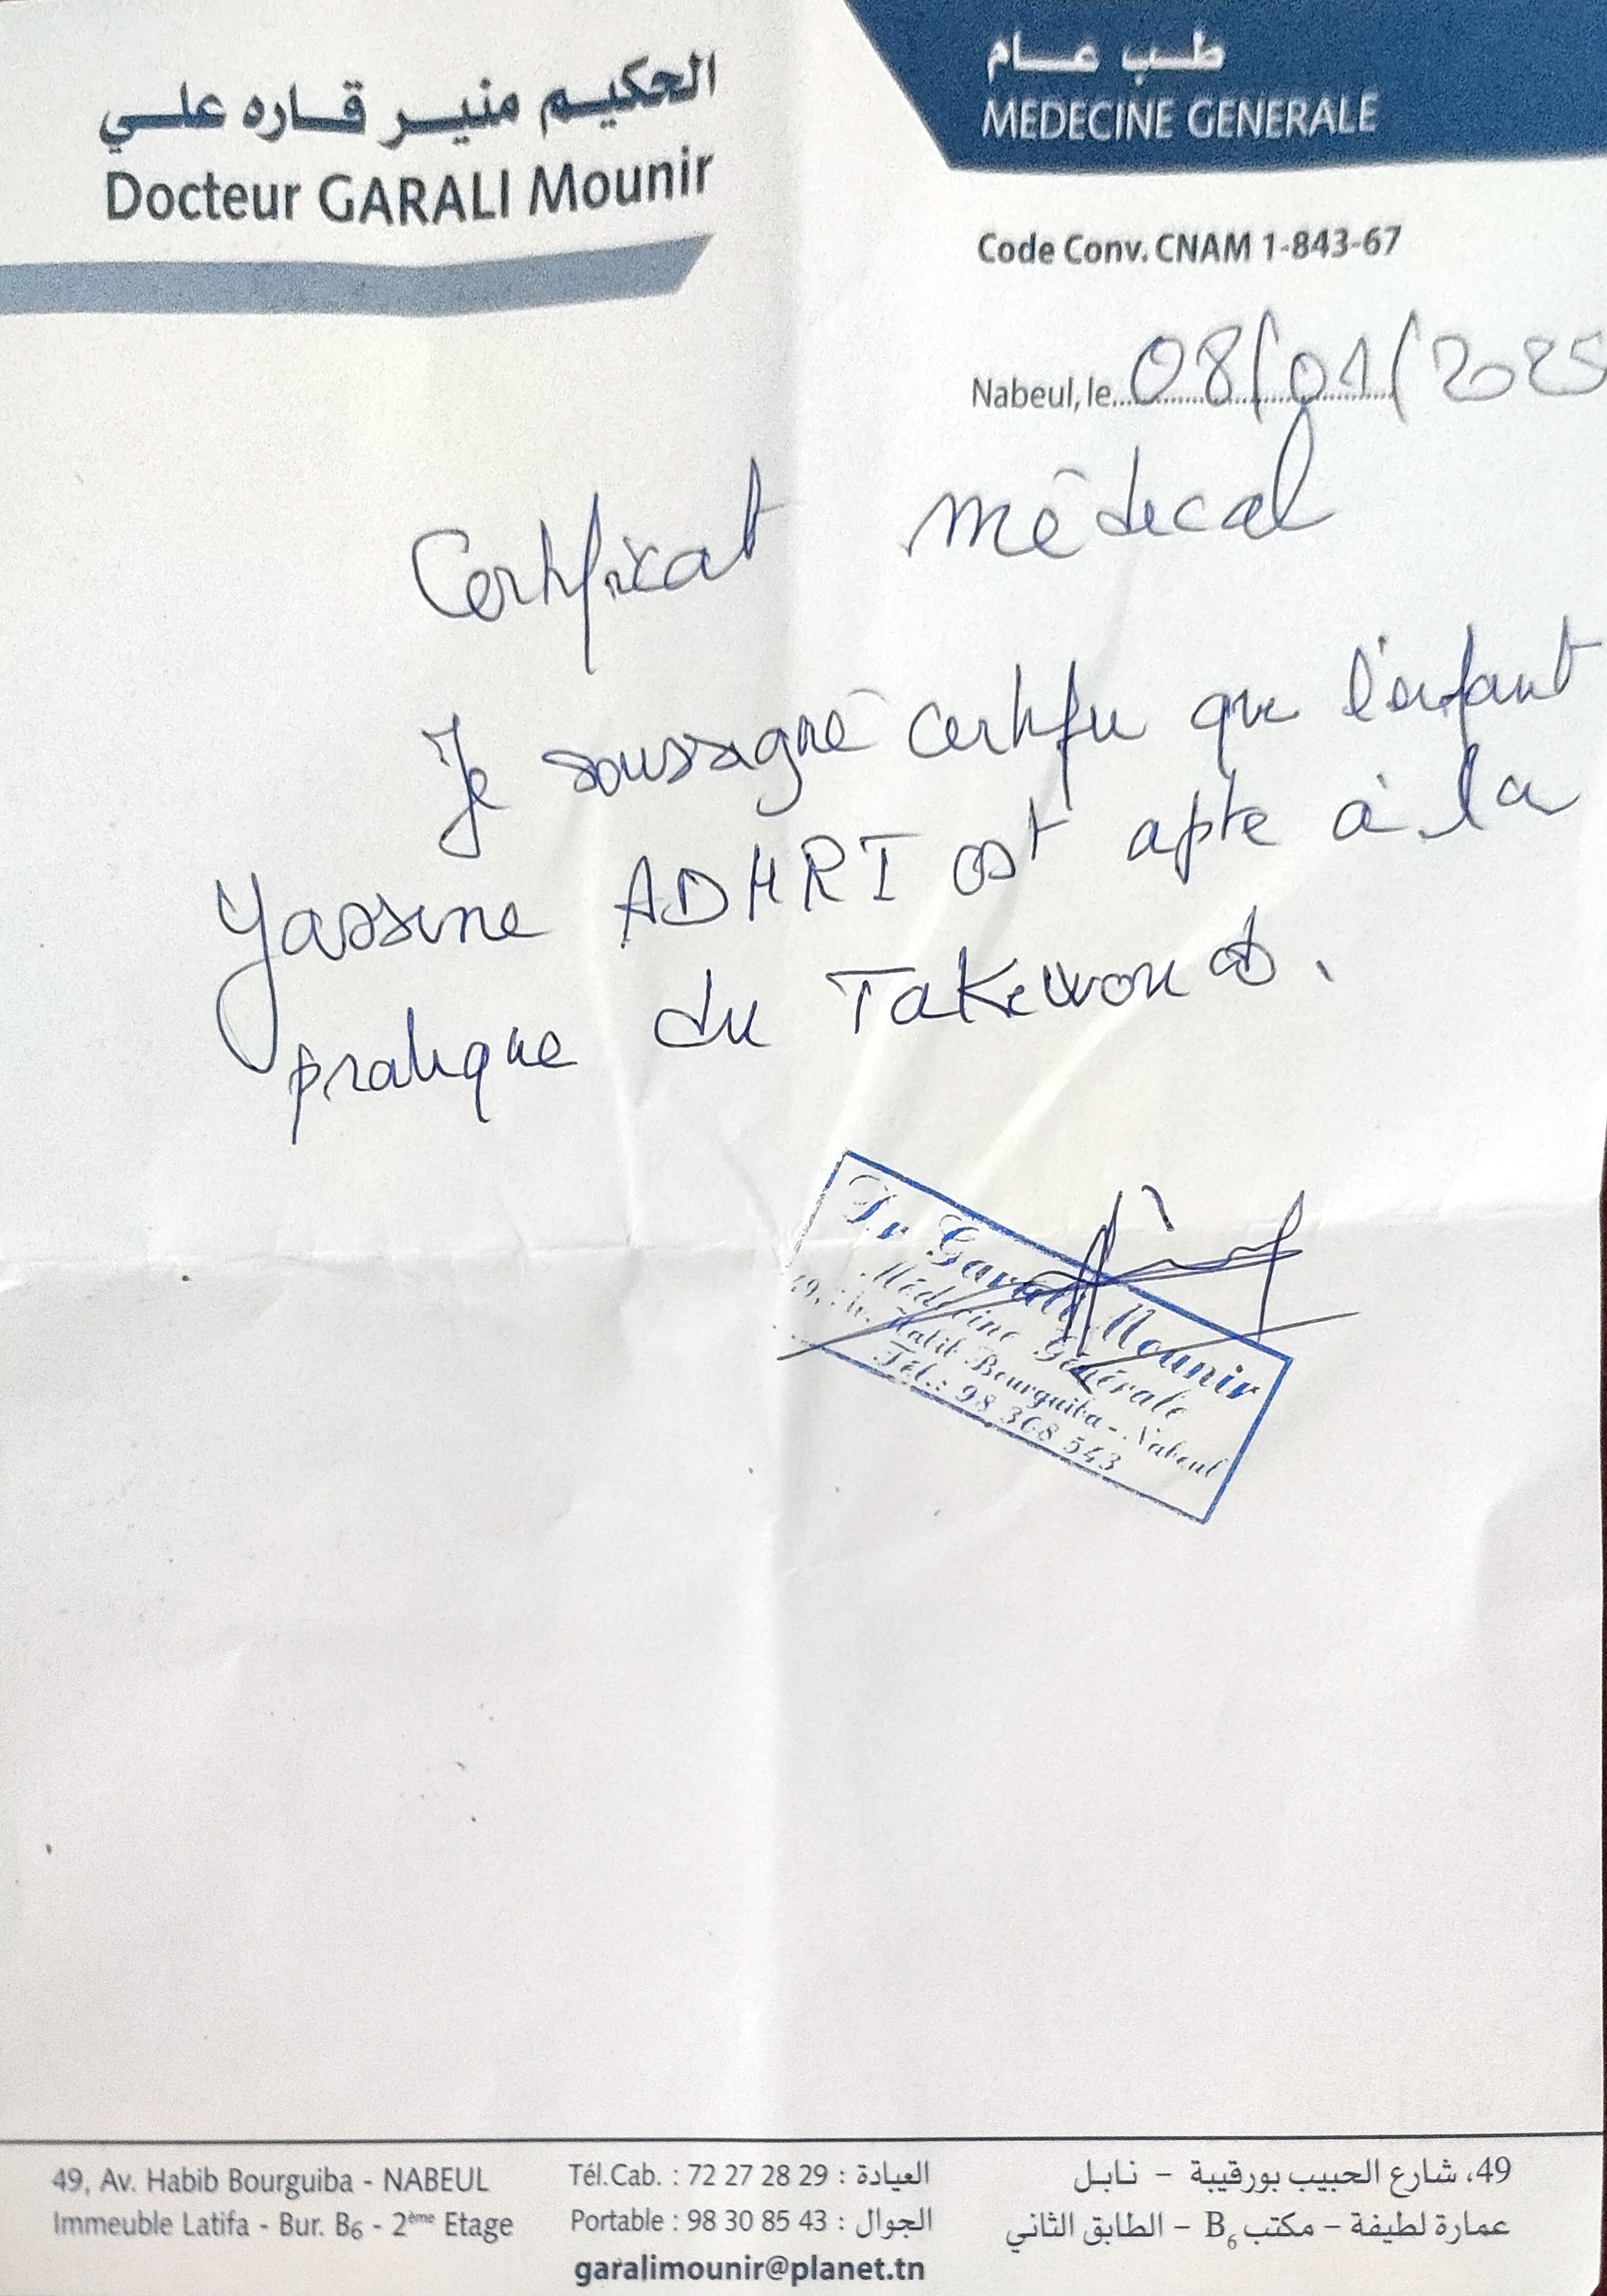 الحكيم منير قاره علي
Docteur GARALI Mounir
طب عام
MEDECINE GENERALE
Code Conv. CNAM 1-843-67
Nabeul, le 08/01/2025
Certificat médical
Je soussigné certifie que l'enfant
Yassine ADHRI est apte à la
pratique du Takewondo.
Dr Garali Mounir
Médecine Générale
49, Av. Habib Bourguiba - Nabeul
Tél.: 98 308 543
49, Av. Habib Bourguiba - NABEUL
Immeuble Latifa - Bur. B6 - 2ème Etage
Tél.Cab. : 72 27 28 29 : العيادة
Portable : 98 30 85 43 : الجوال
garalimounir@planet.tn
49، شارع الحبيب بورقيبة - نابل
عمارة لطيفة - مكتب B6 - الطابق الثاني